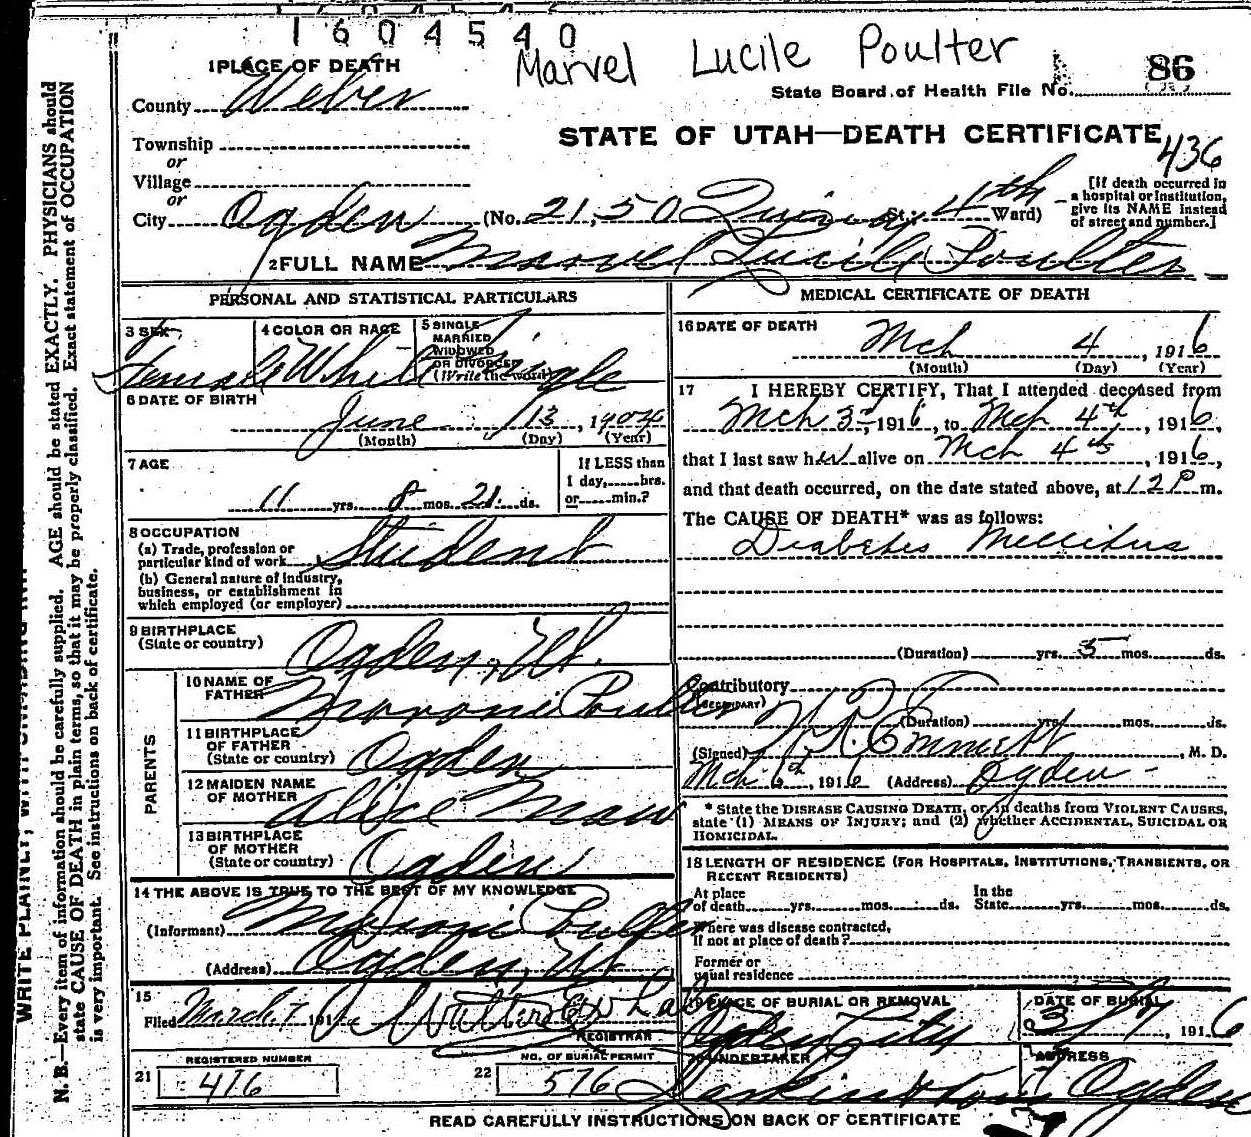 1604540
Marvel Lucile Poulter
86
1 PLACE OF DEATH
County Weber
State Board of Health File No.
STATE OF UTAH—DEATH CERTIFICATE
436
Township
or
Village
or
City Ogden (No. 2150 Quincy St. 4th Ward)
[If death occurred in a hospital or institution, give its NAME instead of street and number.]
2 FULL NAME Marvel Lucile Poulter
PERSONAL AND STATISTICAL PARTICULARS
3 SEX Female
4 COLOR OR RACE White
5 SINGLE MARRIED WIDOWED OR DIVORCED (Write the word) Single
6 DATE OF BIRTH
June 13, 1904
(Month) (Day) (Year)
7 AGE
11 yrs. 8 mos. 21 ds.
If LESS than 1 day,......hrs. or......min.?
8 OCCUPATION
(a) Trade, profession or particular kind of work Student
(b) General nature of industry, business, or establishment in which employed (or employer)
9 BIRTHPLACE
(State or country) Ogden, Ut.
PARENTS
10 NAME OF FATHER Moroni Poulter
11 BIRTHPLACE OF FATHER (State or country) Ogden
12 MAIDEN NAME OF MOTHER Alice Maw
13 BIRTHPLACE OF MOTHER (State or country) Ogden
14 THE ABOVE IS TRUE TO THE BEST OF MY KNOWLEDGE
(Informant) Moroni Poulter
(Address) Ogden, Ut
15
Filed March 7 191
REGISTRAR
REGISTERED NUMBER
21 416
NO. OF BURIAL PERMIT
22 576
MEDICAL CERTIFICATE OF DEATH
16 DATE OF DEATH
Mch 4, 1916
(Month) (Day) (Year)
17 I HEREBY CERTIFY, That I attended deceased from
Mch 3rd, 1916, to Mch 4th, 1916,
that I last saw her alive on Mch 4th, 1916,
and that death occurred, on the date stated above, at 12 P m.
The CAUSE OF DEATH* was as follows:
Diabetes Mellitus
(Duration) yrs. 5 mos. ds.
Contributory
(SECONDARY)
(Duration) yrs. mos. ds.
(Signed) Emmett, M. D.
Mch 6th, 1916 (Address) Ogden
* State the DISEASE CAUSING DEATH, or, in deaths from VIOLENT CAUSES,
state (1) MEANS OF INJURY; and (2) whether ACCIDENTAL, SUICIDAL OR
HOMICIDAL.
18 LENGTH OF RESIDENCE (FOR HOSPITALS, INSTITUTIONS, TRANSIENTS, OR
RECENT RESIDENTS)
At place of death yrs. mos. ds.
In the State yrs. mos. ds.
Where was disease contracted,
If not at place of death?
Former or
usual residence
19 PLACE OF BURIAL OR REMOVAL
Ogden City
DATE OF BURIAL
3/7, 1916
20 UNDERTAKER
ADDRESS
Ogden
READ CAREFULLY INSTRUCTIONS ON BACK OF CERTIFICATE
N. B.—Every item of information should be carefully supplied. AGE should be stated EXACTLY. PHYSICIANS should
state CAUSE OF DEATH in plain terms, so that it may be properly classified. Exact statement of OCCUPATION
is very important. See instructions on back of certificate.
WRITE PLAINLY, WITH UNFADING INK